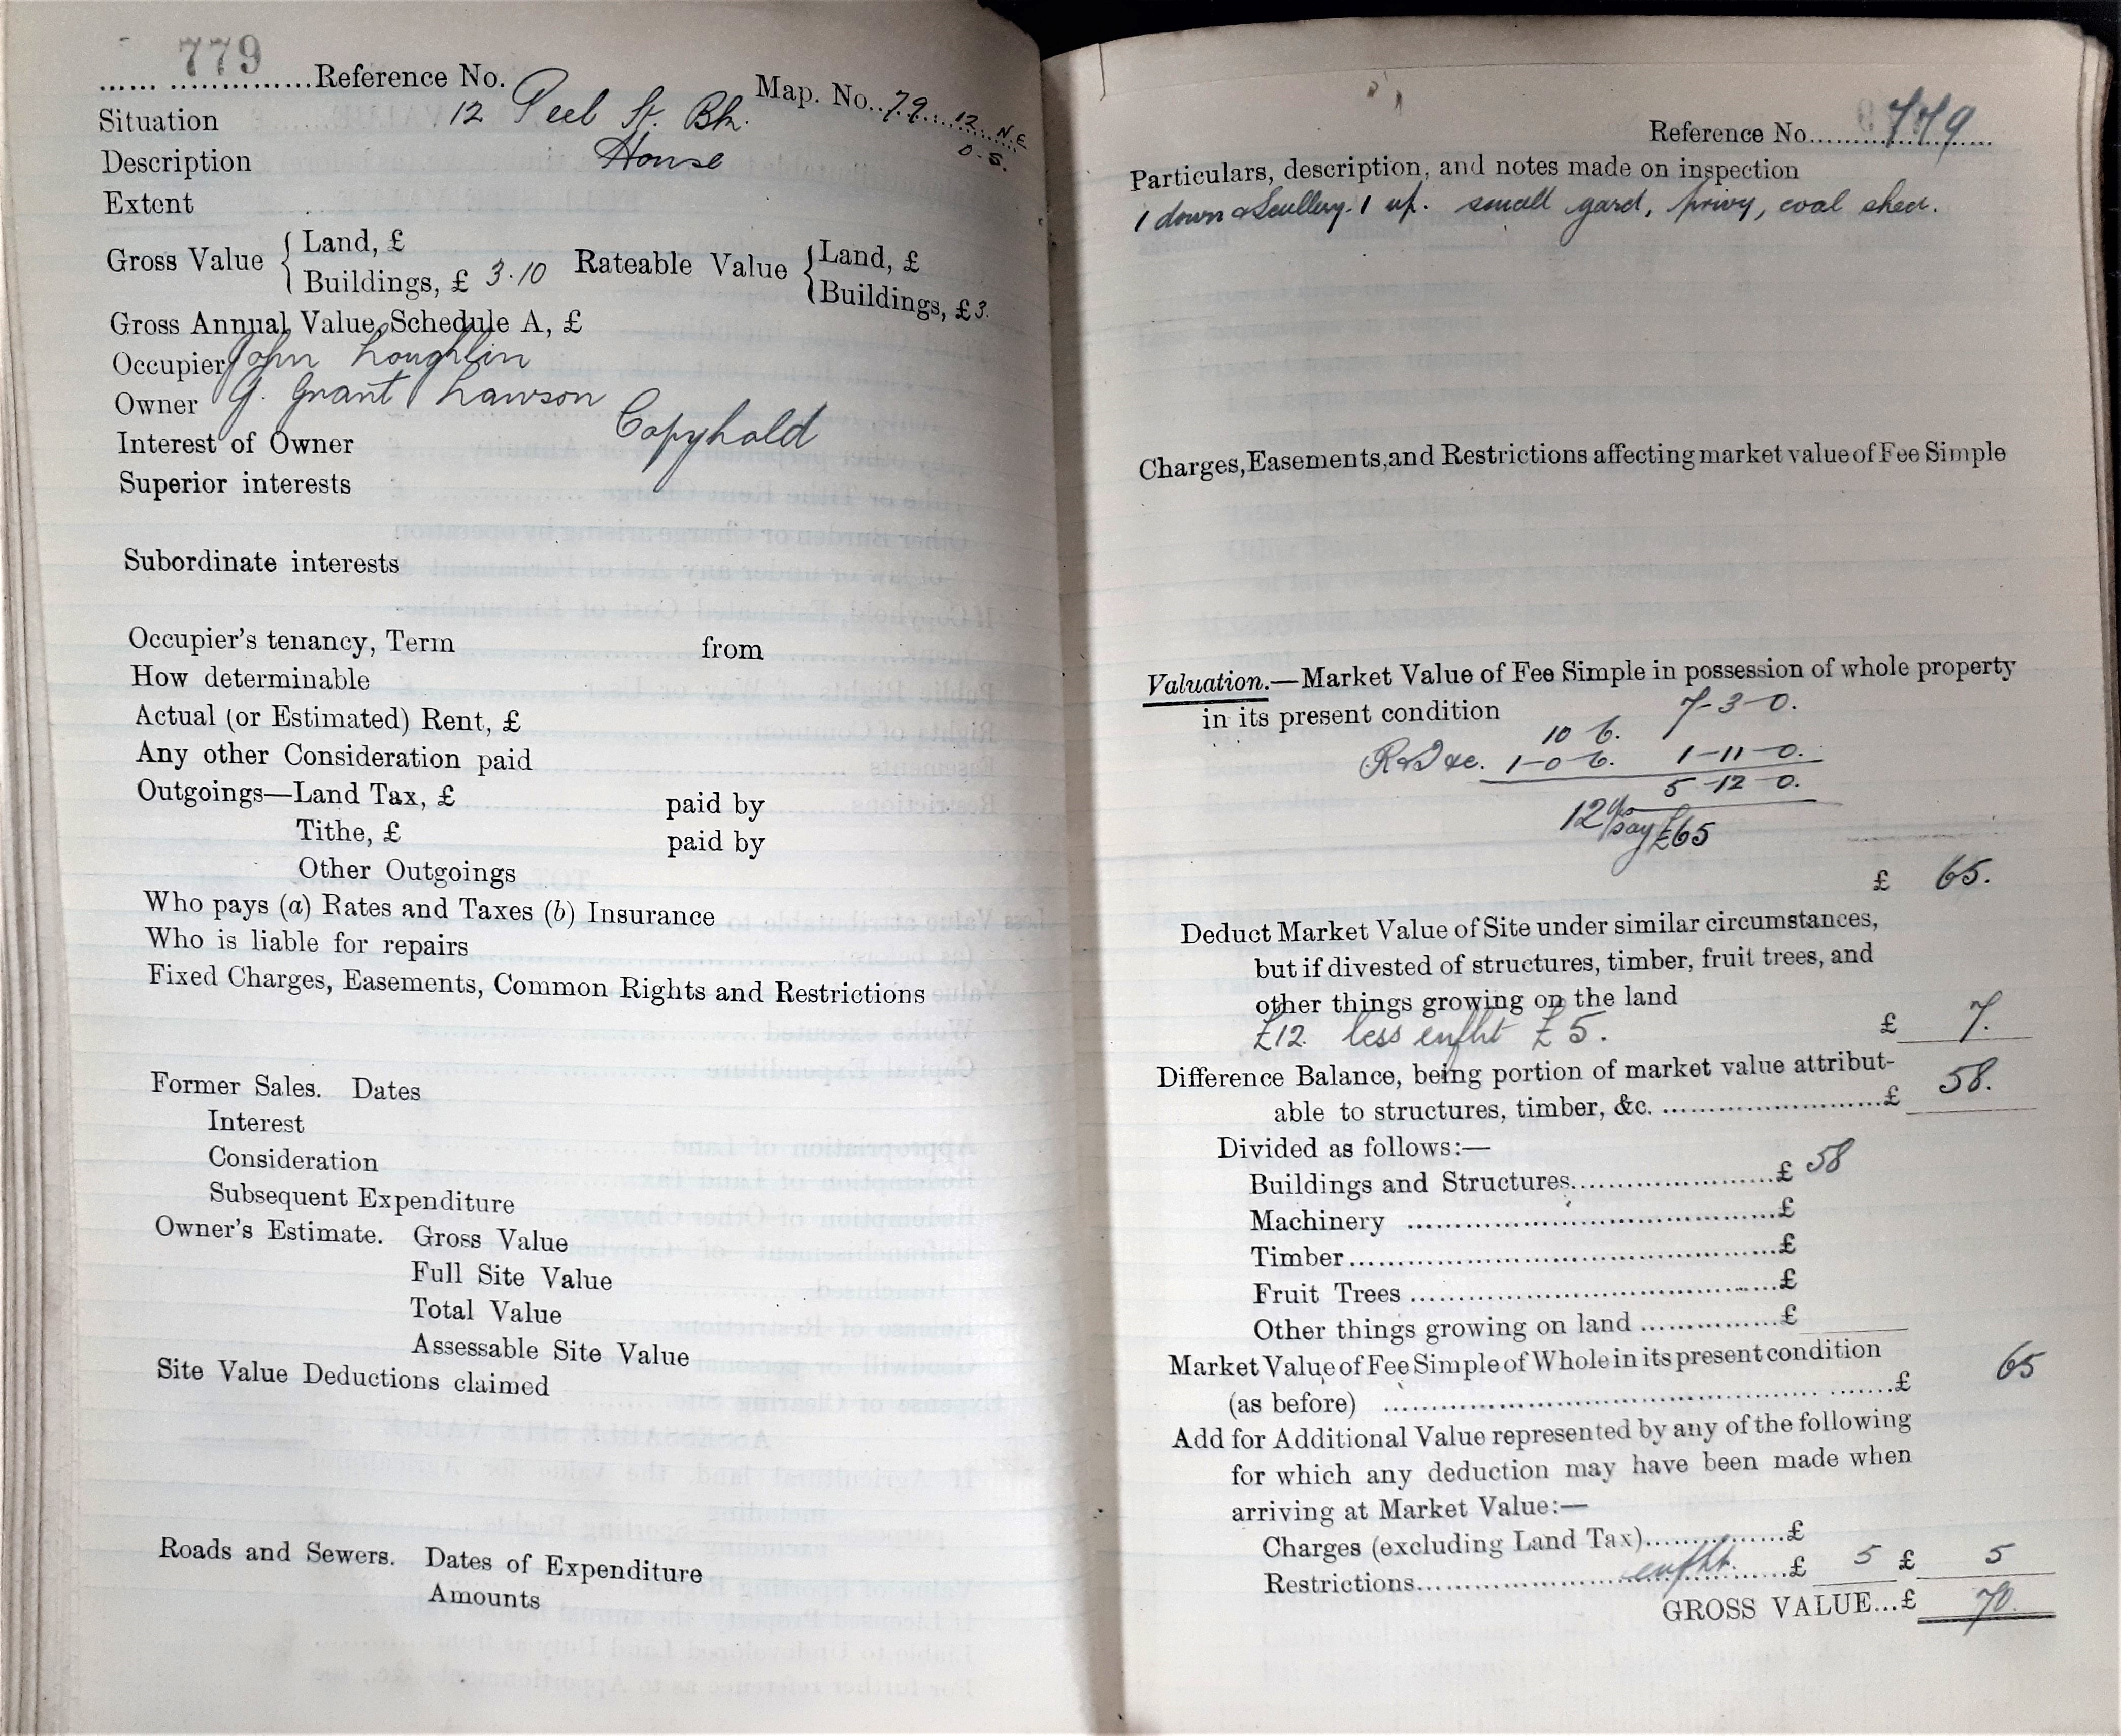 779
...... ..............Reference No.
Map. No..79....12...N.E
O.S.
Situation 12 Peel St. Bk.
Description House
Extent
Gross Value { Land, £
Buildings, £ 3.10
Rateable Value { Land, £
Buildings, £3.
Gross Annual Value, Schedule A, £
Occupier John Loughlin
Owner G. Grant Lawson
Interest of Owner Copyhold
Superior interests
Subordinate interests
Occupier's tenancy, Term from
How determinable
Actual (or Estimated) Rent, £
Any other Consideration paid
Outgoings—Land Tax, £ paid by
Tithe, £ paid by
Other Outgoings
Who pays (a) Rates and Taxes (b) Insurance
Who is liable for repairs
Fixed Charges, Easements, Common Rights and Restrictions
Former Sales. Dates
Interest
Consideration
Subsequent Expenditure
Owner's Estimate. Gross Value
Full Site Value
Total Value
Assessable Site Value
Site Value Deductions claimed
Roads and Sewers. Dates of Expenditure
Amounts
Reference No....779...
Particulars, description, and notes made on inspection
1 down & Scullery. 1 up. small yard, privy, coal shed.
Charges, Easements, and Restrictions affecting market value of Fee Simple
Valuation.—Market Value of Fee Simple in possession of whole property
in its present condition 7-3-0.
10 6.
1-0-6. 1-11-0.
5-12-0.
12 say £65
£ 65.
Deduct Market Value of Site under similar circumstances,
but if divested of structures, timber, fruit trees, and
other things growing on the land
£12 less enfht £5. £ 7.
Difference Balance, being portion of market value attribut-
able to structures, timber, &c. ........................£ 58.
Divided as follows:—
Buildings and Structures........................£ 58
Machinery ........................£
Timber........................£
Fruit Trees ........................£
Other things growing on land ................£
Market Value of Fee Simple of Whole in its present condition
(as before) ........................£ 65
Add for Additional Value represented by any of the following
for which any deduction may have been made when
arriving at Market Value:—
Charges (excluding Land Tax)................£
Restrictions........enfht........£ 5 £ 5
GROSS VALUE...£ 70.